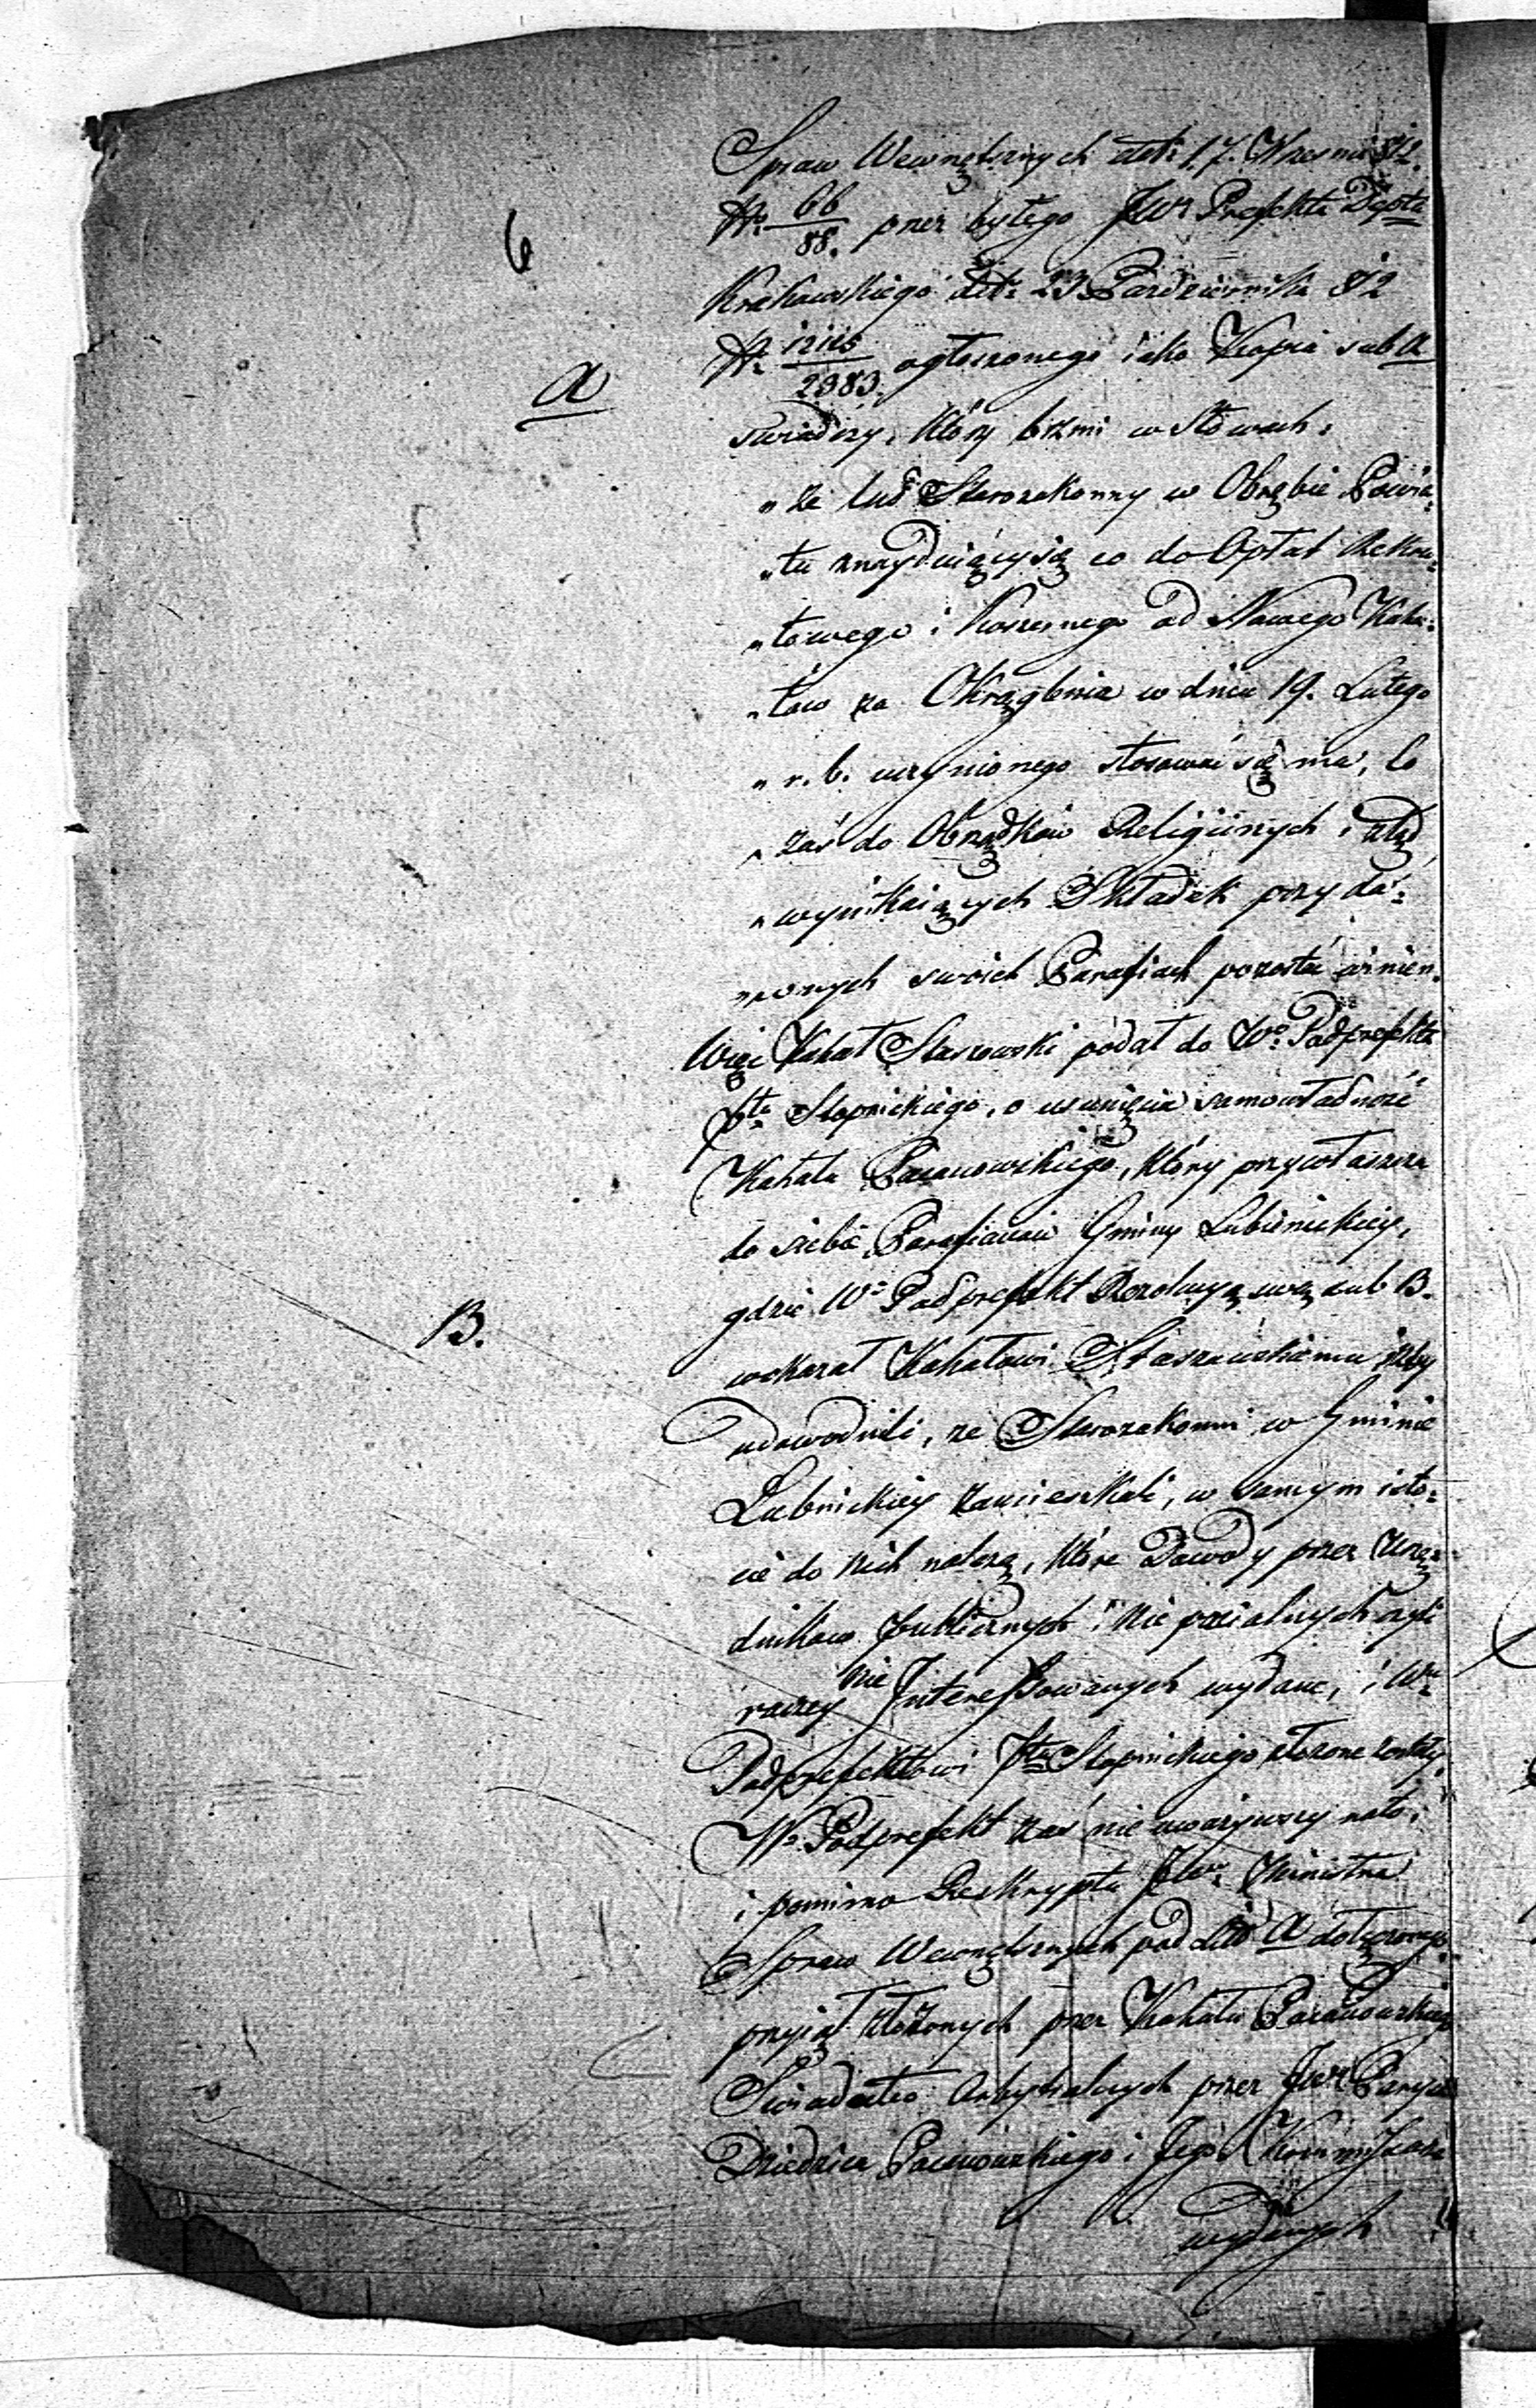 Spraw Wewnętrznych ddt: 17. Wrześni 812.
No 66/88. przez byłego JWo Prefekta Depttu
Krakowskiego ddt: 23 Pazdziernika 812
No 12115/2383. ogłoszonego iako Kopia sub a
a
swiadczy, który brzmi w słowach:
„ że lud Starozakonny w Obrębie Powia:
„ tu znayduiący się co do Opłat Rekru:
„ towego i Koszernego od Nowego Kaha:
„ łów za Okręglenia w dniu 19. Lutego
„ r. b. uczynionego stosować się ma, Co
„ zaś do Obrządków Religiinych i ztąd
„ wynikaiących Składek przy da:
„ wnych swoich Parafiach pozostać winien.
Więc Kahał Staszowski podał do Wo Podprefekta
Pttu Stopnickiego, o usunięcia samowładność
Kahału Pacanowskiego, który przywłaszcza
do siebie Parafianów Gminy Łubnickiey,
gdzie Wo Podprefekt Rezolucyą swą sub B.
B.
wskazał Kahałowi Staszowskiemu ażeby
udowodnili, że Starozakonni w Gminie
Łubnickiey zamieszkali, w samym isto:
cie do nich należą, które Dowody przez Urzę:
dników Publicznych i nie parcialnych czyli
raczey nie Interessowanych wydane, i Wmu
Podprefektowi Pttu Stopnickiego złożone zostały.
Wo Podprefekt zaś nie uważywszy na to,
i pomimo Reskryptu JWo Ministra
Spraw Wewnętrznych pod Lit: a dołączonego
przyiął złożonych przez Kahału Pacanowskiego
Swiadectw przez JWo
Dziedzica Pacanowskiego i Jego Kommissarza
wydanych
6